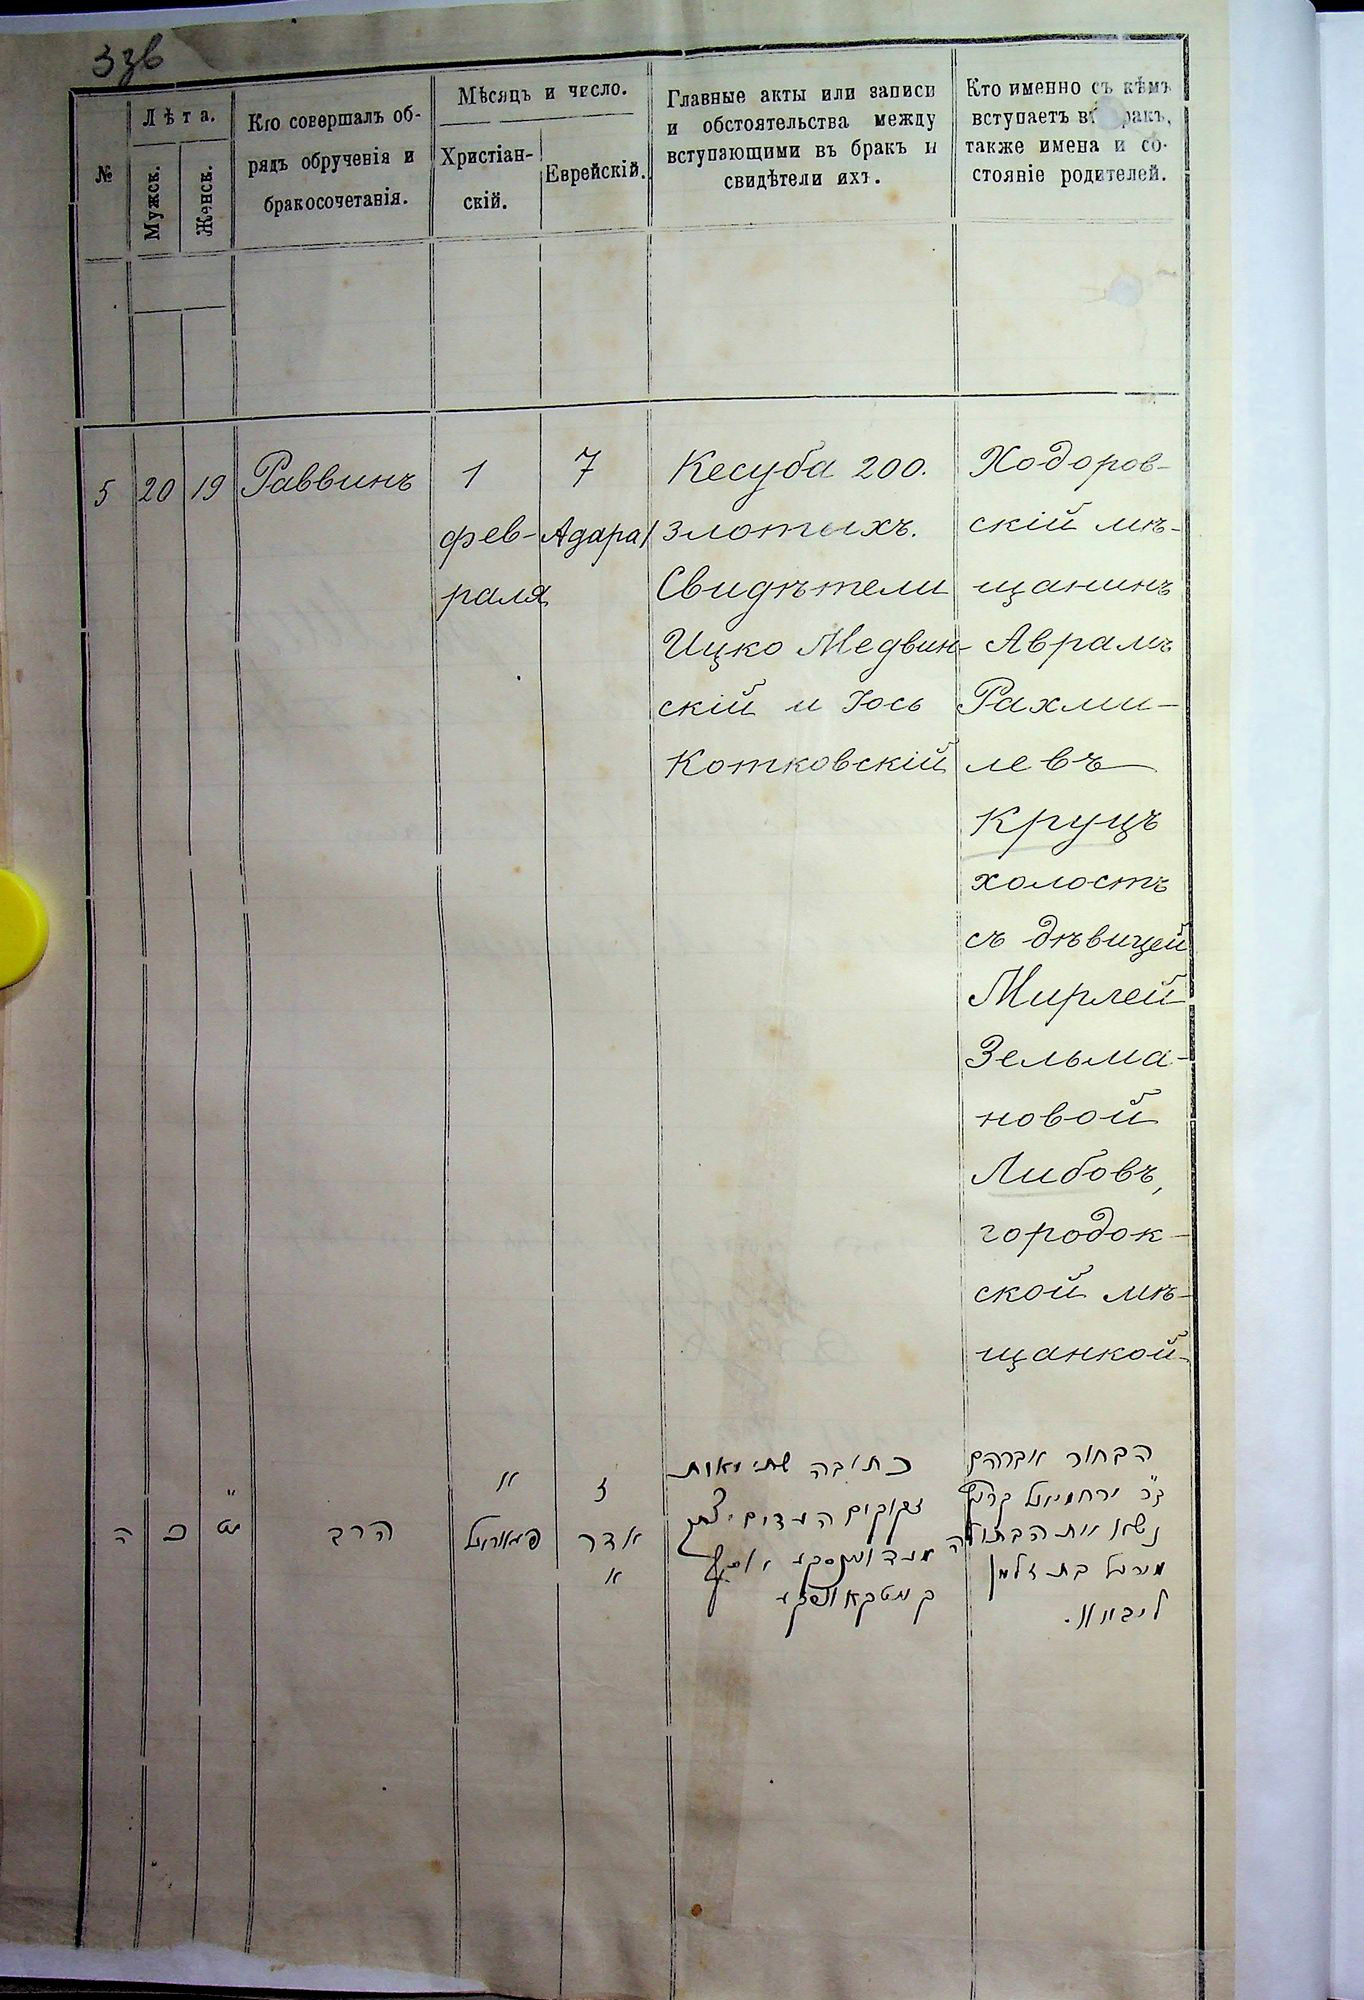 3зв
№
Лѣта.
Мужск.
Женск.
Кто совершалъ об-
рядъ обрученія и
бракосочетанія.
Мѣсяцъ и число.
Христіан-
скій.
Еврейскій.
Главные акты или записи
и обстоятельства между
вступающими въ бракъ и
свидѣтели ихъ.
Кто именно съ кѣмъ
вступаетъ въ бракъ,
также имена и со-
стояніе родителей.
5
20
19
Раввинъ
1
фев-
раля
7
Адара 1
Кесуба 200.
злотыхъ.
Свидѣтели
Ицко Медвин-
скій и Іось
Котковскій
Ходоров-
скій мѣ-
щанинъ
Аврамъ
Рахми-
левъ
Круцъ
холостъ
съ дѣвицей
Мирлей
Зельма-
новой
Либовъ,
городок-
ской мѣ-
щанкой
ה
כ
יט
הרב
א
פעוראל
ז
אדר
א
כתובה שתי מאות
זקוקים העדים יצחק
קאטקאווסקי
הבחור אברהם
ב״ר ירחמיאל קרוץ
נשא את הבתולה
מירל בת זלמן
ליבאוו.